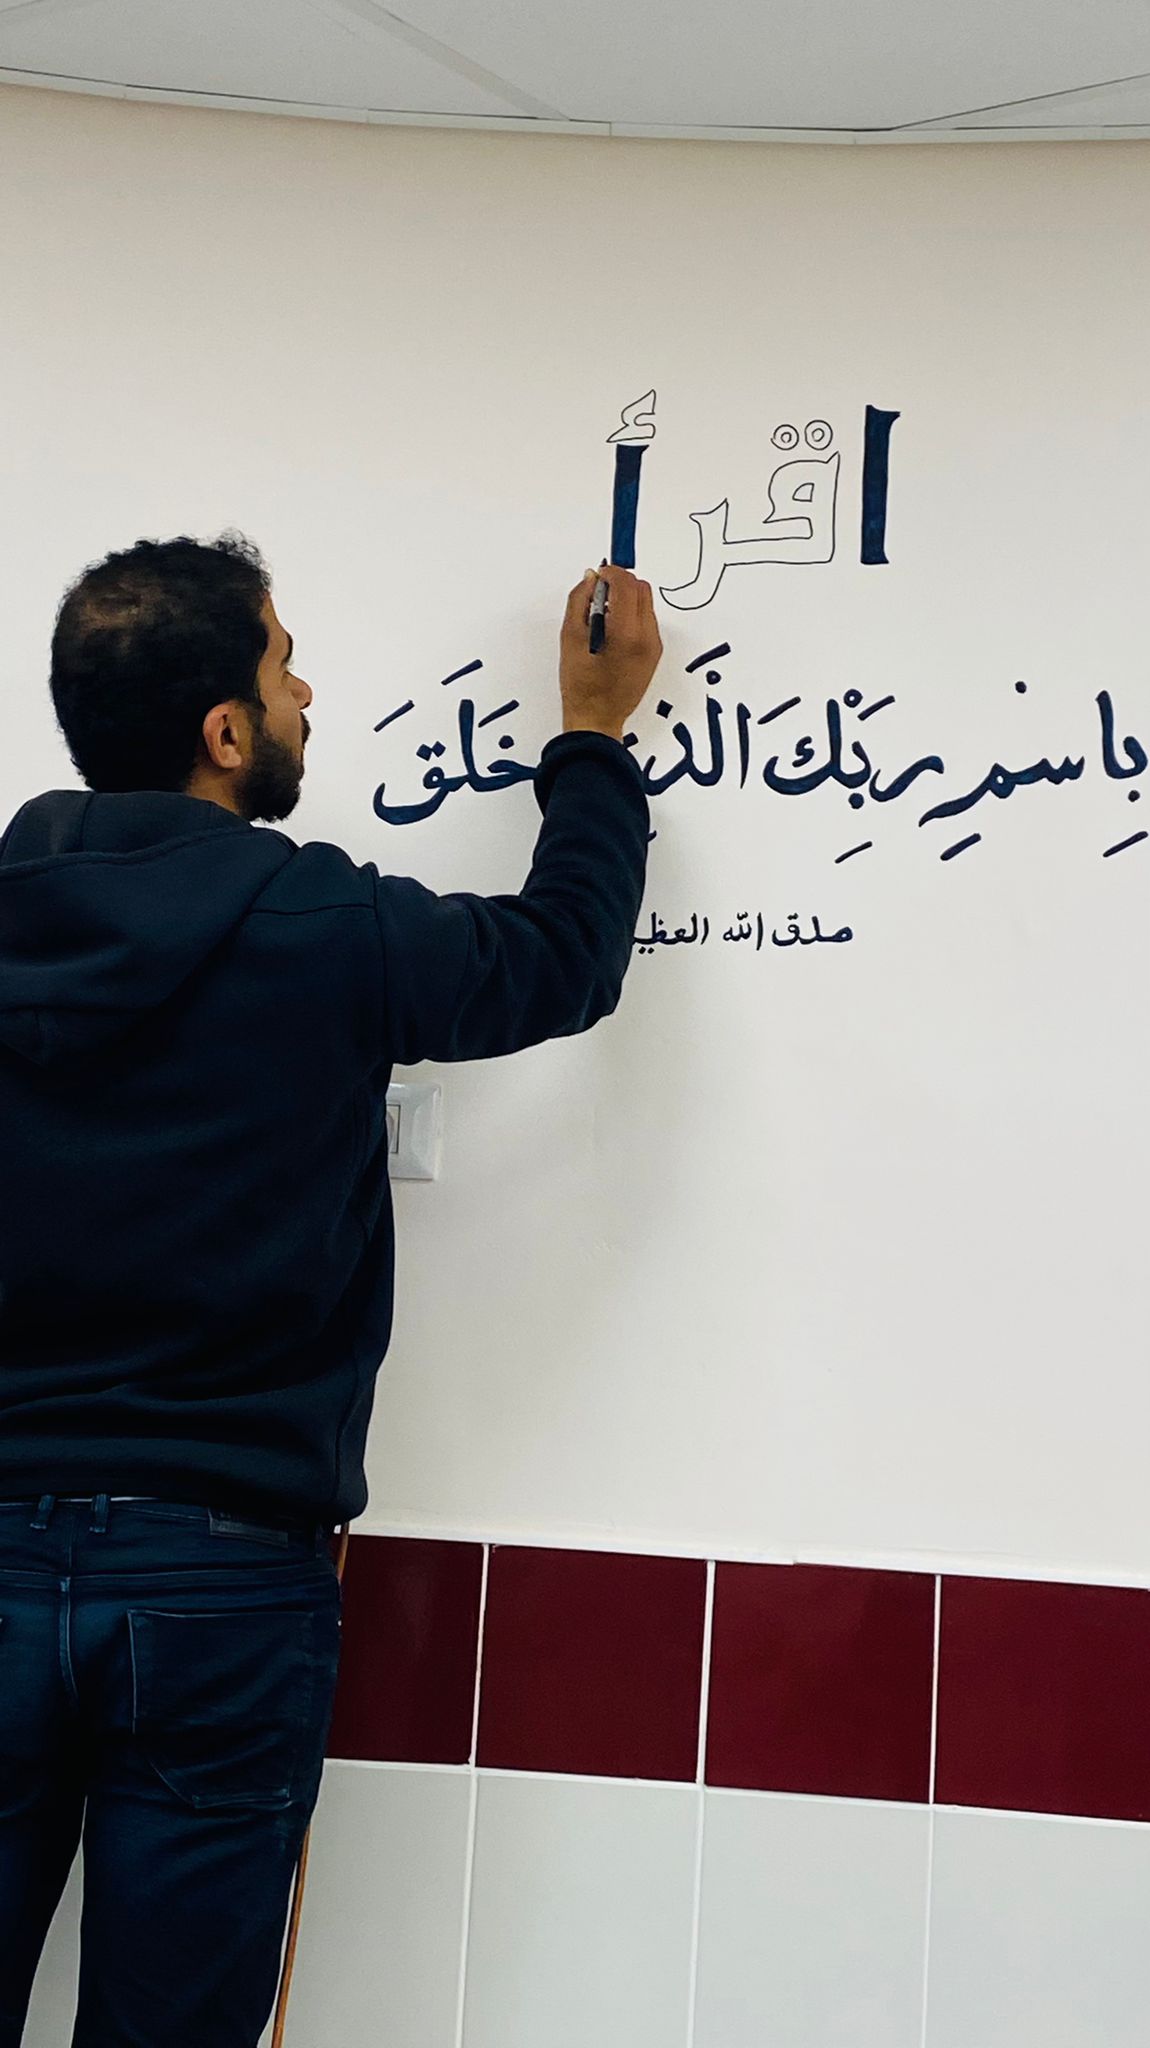 اقرأ
بِاسْمِ رَبِّكَ الَّذِي خَلَقَ
صدق الله العظيم